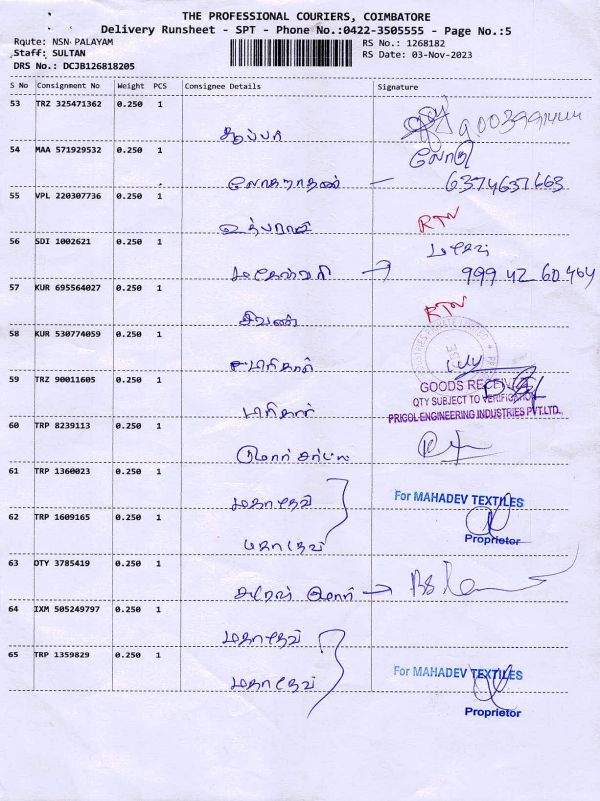 THE PROFESSIONAL COURIERS, COIMBATORE
Delivery Runsheet - SPT - Phone No.:0422-3505555 - Page No.:5
Route: NSN PALAYAM
RS No.: 1268182
Staff: SULTAN
RS Date: 03-Nov-2023
DRS No.: DCJB126818205
S No Consignment No Weight PCS Consignee Details Signature
53 TRZ 325471362 0.250 1
54 MAA 571929532 0.250 1
லோகநாதன் —
55 VPL 220307736 0.250 1
RTN
56 SDI 1002621 0.250 1
மகேஸ்வரி → 999 42 60 464
57 KUR 695564027 0.250 1
சிவன் RTN
58 KUR 530774059 0.250 1
59 TRZ 90011605 0.250 1
GOODS RECEIVED
QTY SUBJECT TO VERIFICATION
PRICOL ENGINEERING INDUSTRIES PVT.LTD.,
60 TRP 8239113 0.250 1
61 TRP 1360023 0.250 1
மகாதேவ் For MAHADEV TEXTILES
62 TRP 1609165 0.250 1
மகாதேவ் Proprietor
63 DTY 3785419 0.250 1
64 IXM 505249797 0.250 1
மகாதேவ்
65 TRP 1359829 0.250 1
மகாதேவ் For MAHADEV TEXTILES
Proprietor